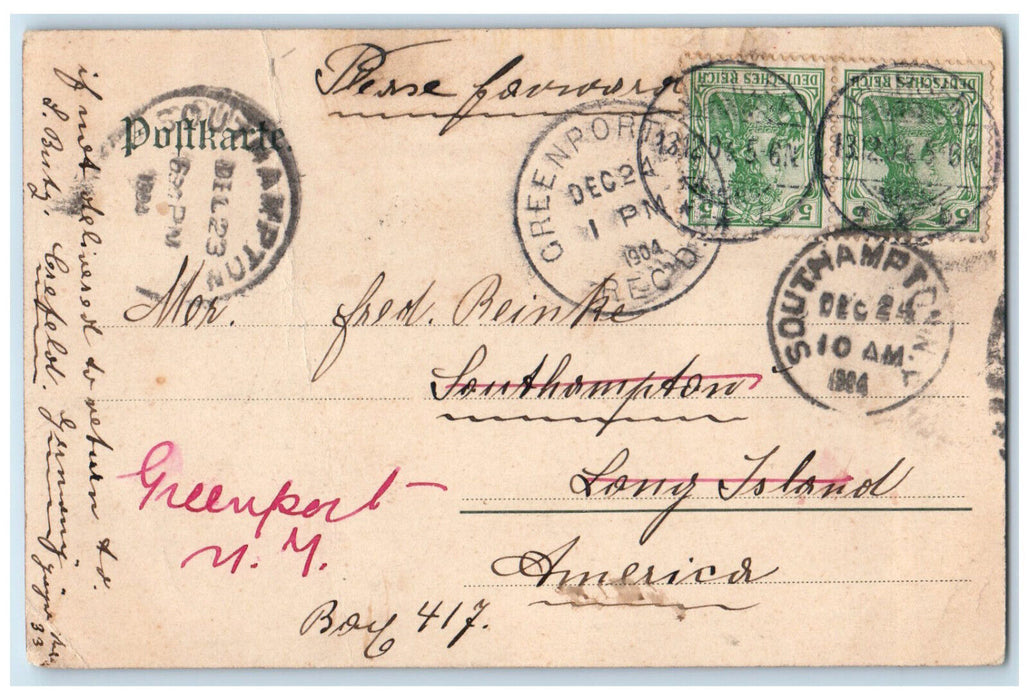 Please forward
Postkarte.
DEUTSCHES REICH
5 5
DEUTSCHES REICH
5 5
13.12.04. 5-6N
13.12.04. 5-6N
GREENPORT
DEC 24
1 PM
1904
REC'D.
SOUTHAMPTON
DEC 23
6 PM
SOUTHAMPTON
DEC 24
10 AM
1904
N.Y.
Fred. Reinke
Southampton
Long Island
America
Greenport
N. Y.
Box 417.
if not delivered to return to
Crefeld. Germany
33